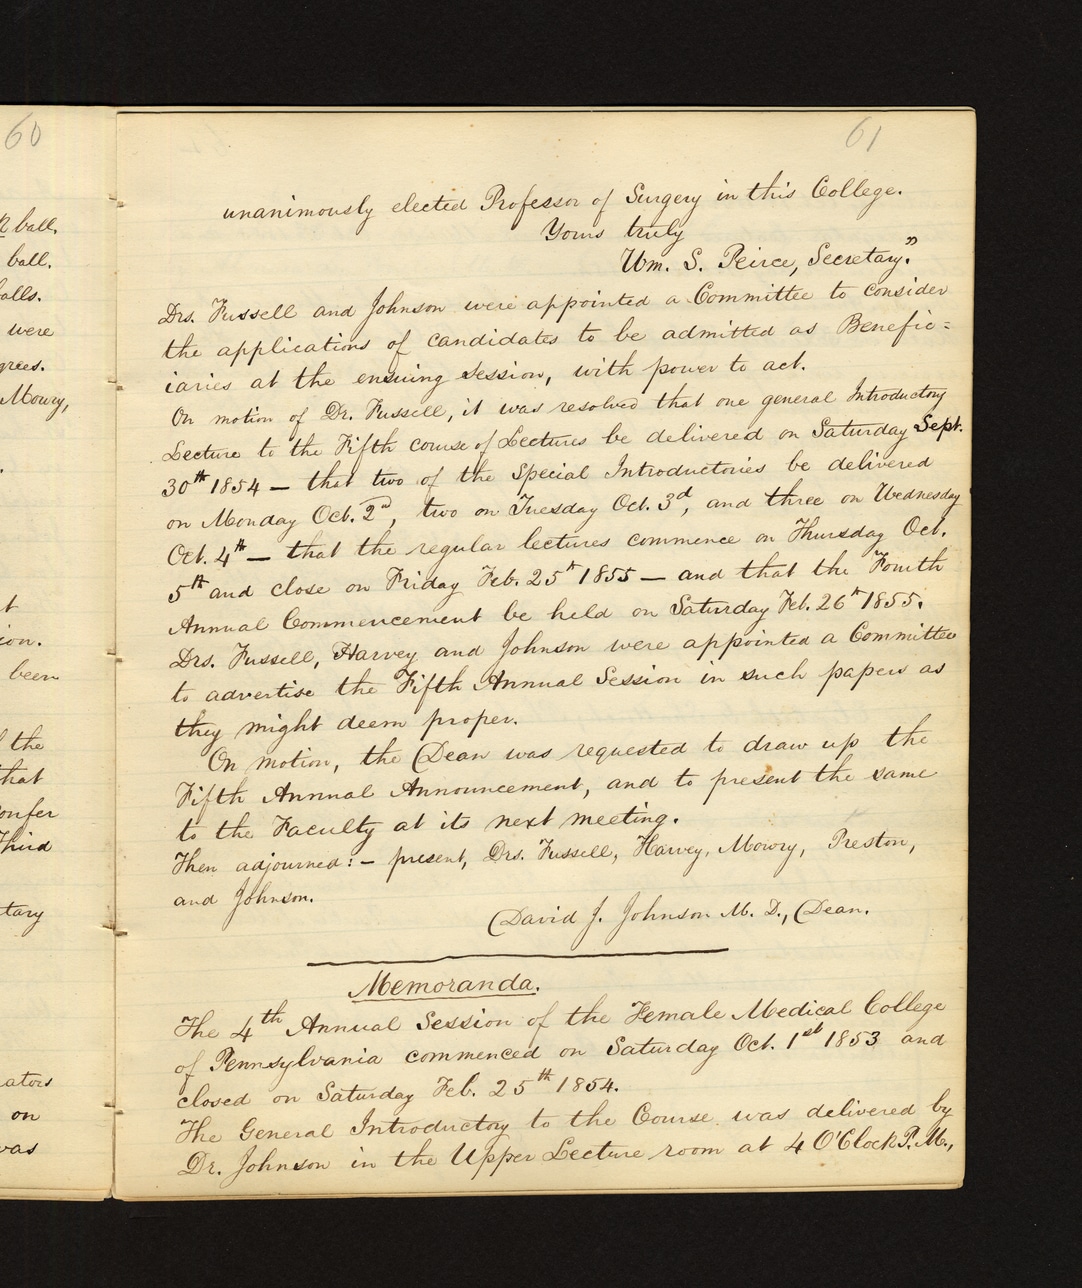 60
ball.
ball.
balls.
were
Mowry,
ion.
been
the
that
onfer
Third
tary
ators
on
was
61
unanimously elected Professor of Surgery in this College.
Yours truly
Wm. S. Peirce, Secretary."
Drs. Fussell and Johnson were appointed a Committee to consider
the applications of candidates to be admitted as Benefic=
iaries at the ensuing session, with power to act.
On motion of Dr. Fussell, it was resolved that one general Introductory
Lecture to the Fifth course of Lectures be delivered on Saturday Sept.
30th 1854 — that two of the Special Introductories be delivered
on Monday Oct. 2d, two on Tuesday Oct. 3d, and three on Wednesday
Oct. 4th — that the regular lectures commence on Thursday Oct.
5th and close on Friday Feb. 25th 1855 — and that the Fourth
Annual Commencement be held on Saturday Feb. 26th 1855.
Drs. Fussell, Harvey and Johnson were appointed a Committee
to advertise the Fifth Annual Session in such papers as
they might deem proper.
On motion, the Dean was requested to draw up the
Fifth Annual Announcement, and to present the same
to the Faculty at its next meeting.
Then adjourned: — present, Drs. Fussell, Harvey, Mowry, Preston,
and Johnson.
David J. Johnson M. D., Dean.
Memoranda.
The 4th Annual Session of the Female Medical College
of Pennsylvania commenced on Saturday Oct. 1st 1853 and
closed on Saturday Feb. 25th 1854.
The General Introductory to the Course was delivered by
Dr. Johnson in the Upper Lecture room at 4 O'Clock P. M.,